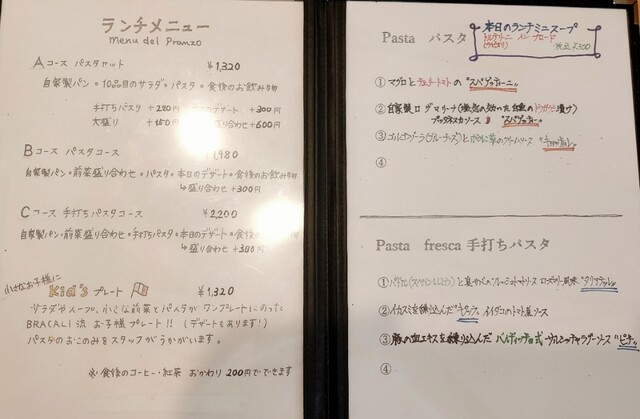 ランチメニュー
Menu del Pranzo
Aコース パスタセット ¥1,320
自家製パン・10品目のサラダ・パスタ・食後のお飲み物
手打ちパスタ +220円 デザート +300円
大盛り +150円 盛り合わせ+600円
Bコース パスタコース ¥1,980
自家製パン・前菜盛り合わせ・パスタ・本日のデザート・食後のお飲み物
↳盛り合わせ +300円
Cコース 手打ちパスタコース ¥2,200
自家製パン・前菜盛り合わせ・手打ちパスタ・本日のデザート・食後の
↳盛り合わせ +300円
小さなお子様に
Kid'sプレート ¥1,320
サラダやスープ、小さな前菜とパスタが ワンプレートにのった
BRACALI流 お子様プレート!! (デザートもあります!)
パスタのおこのみをスタッフがうかがいます。
※食後のコーヒー・紅茶 おかわり 200円でできます
Pasta パスタ
本日のランチミニスープ
トルテリーニ イン ブロード
¥300
① マグロとチェリートマトの "スパゲッティーニ"
② 自家製
"スパゲッティー"
③ ゴルゴンゾーラ(ブルーチーズ)と
④
Pasta fresca 手打ちパスタ
① 風味
② イカスミを練り込んだ イイダコのトマト煮ソース
③ 豚の血エキスを練り込んだ ソース "ピチ"
④